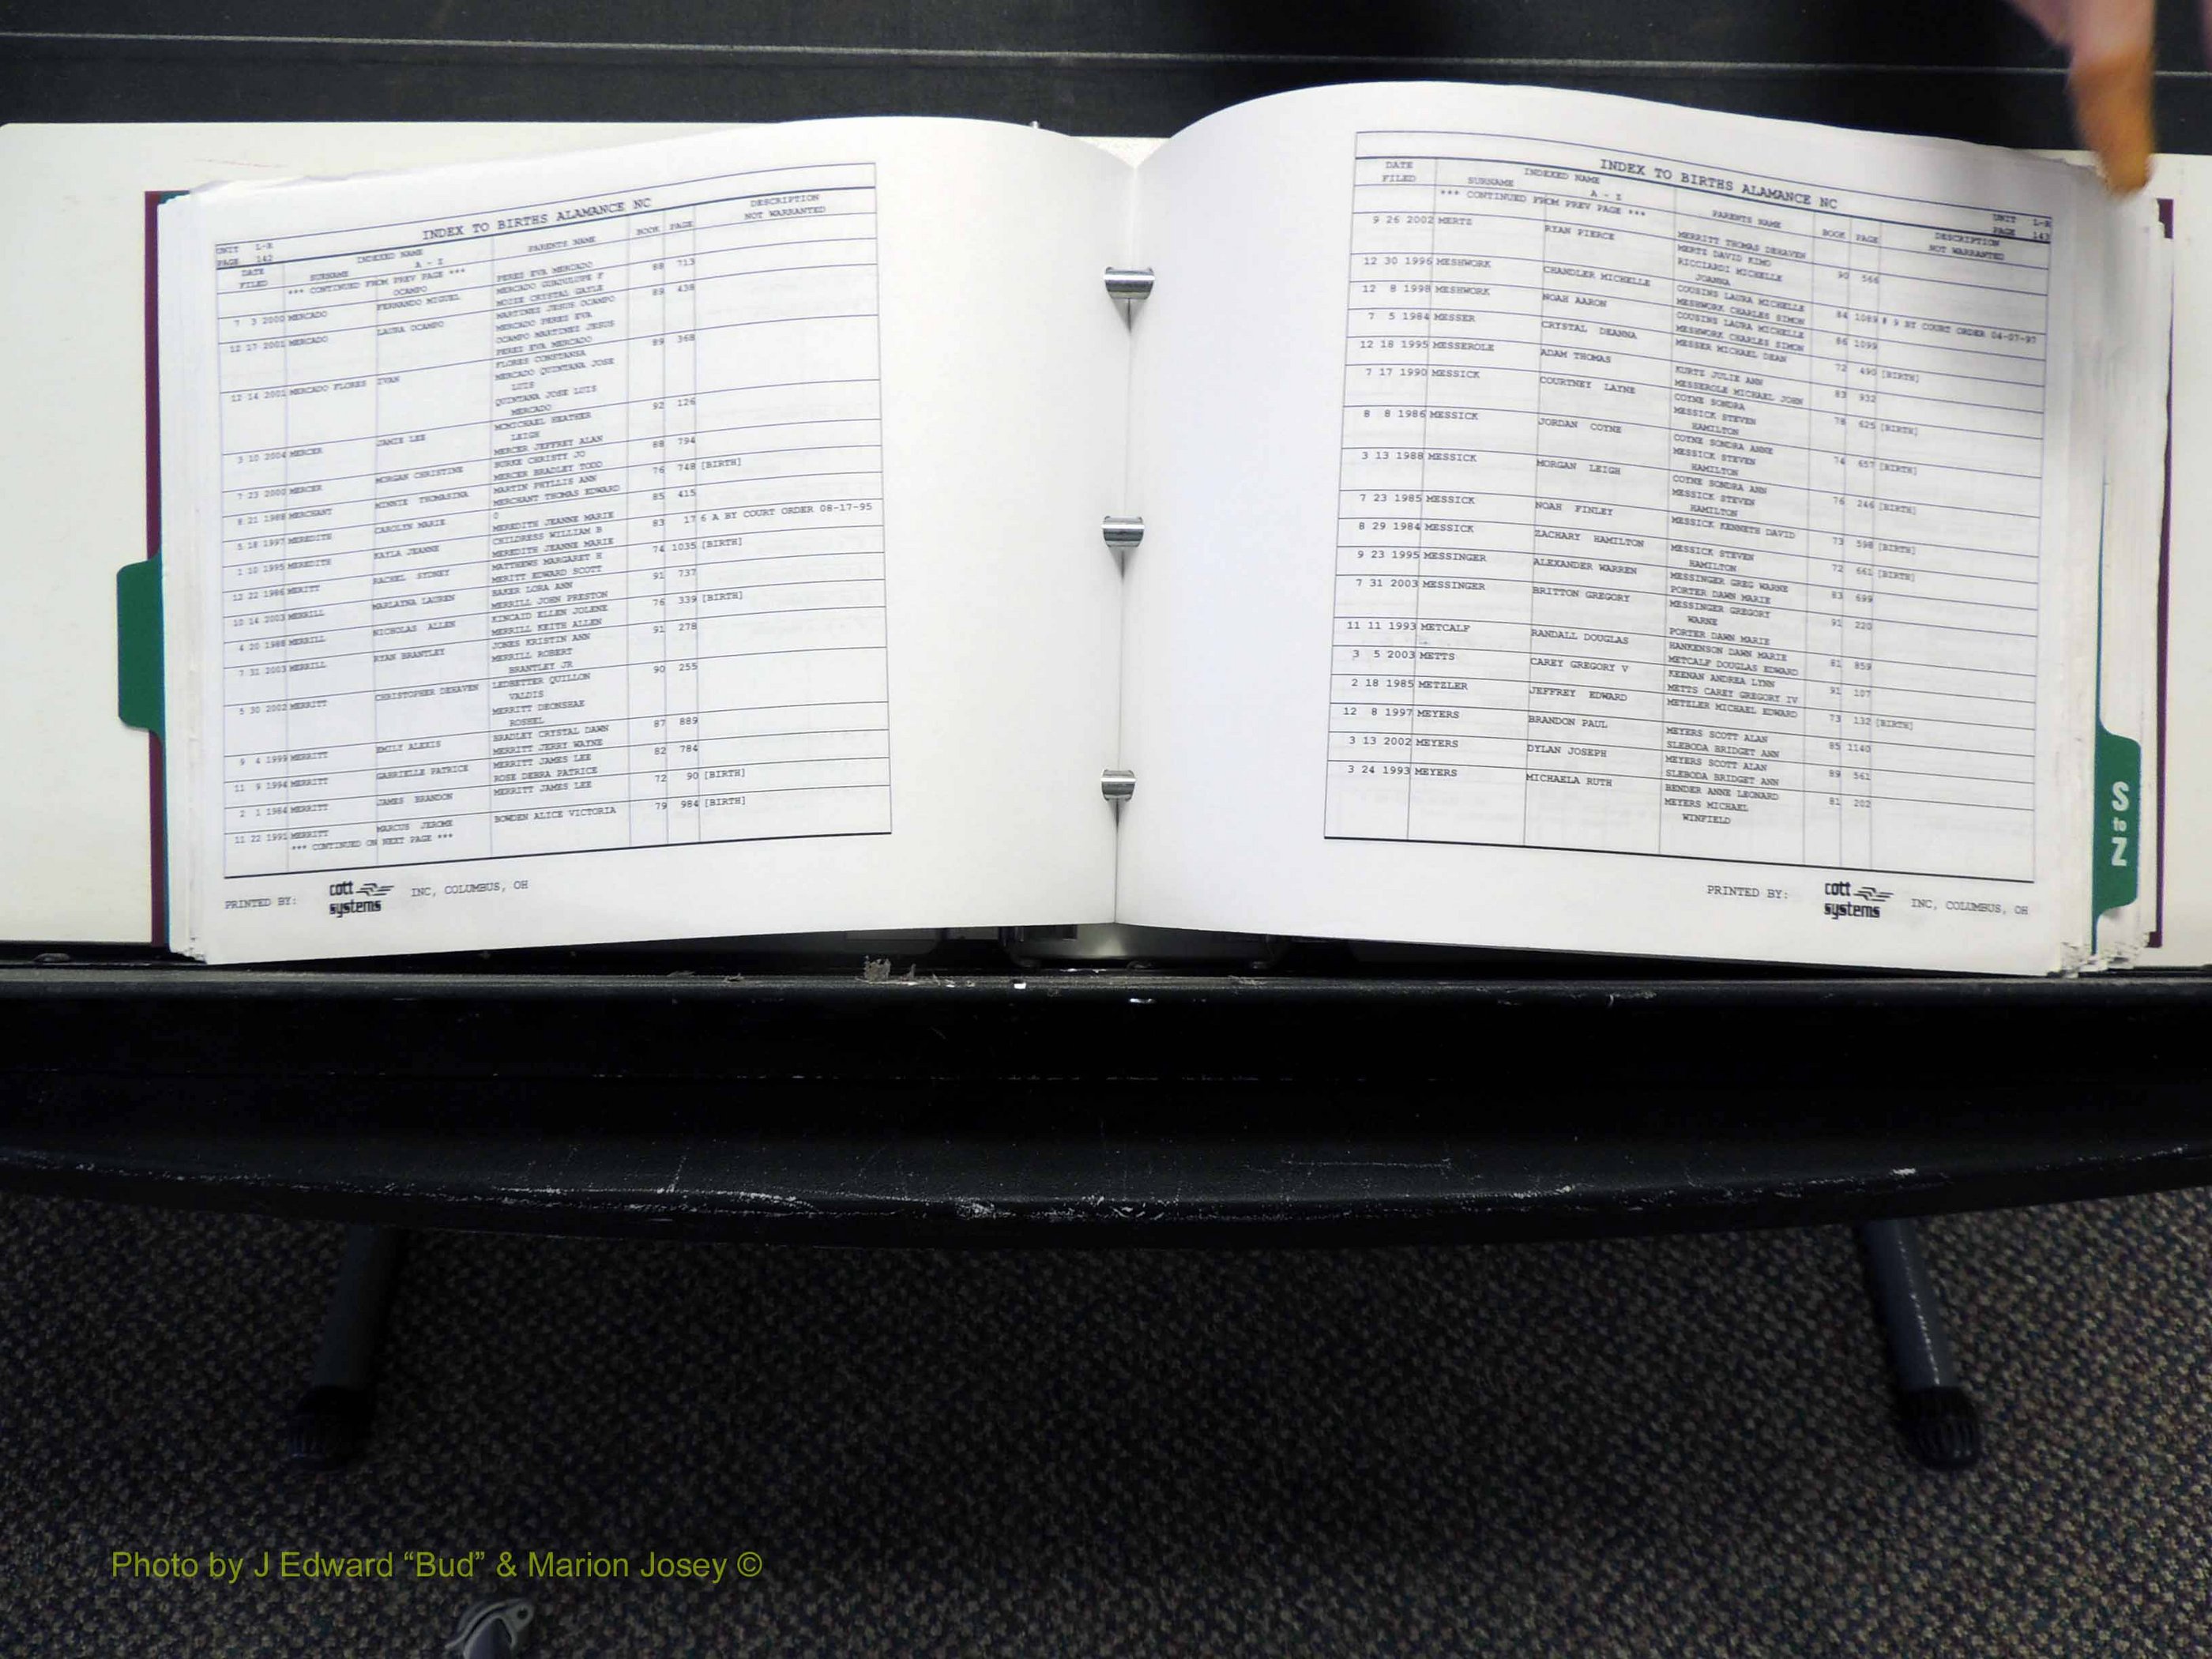 INDEX TO BIRTHS ALAMANCE NC
UNIT L-R
PAGE 142
DATE FILED SURNAME INDEXED NAME A - Z PARENTS NAME BOOK PAGE DESCRIPTION NOT WARRANTED
*** CONTINUED FROM PREV PAGE ***
OCAMPO PEREZ EVA MERCADO
7 3 2000 MERCADO FERNANDO MIGUEL MERCADO GUADULUPE F 88 713
MOIZE CRYSTAL GAYLE
12 17 2001 MERCADO LAURA OCAMPO MARTINEZ JESUS OCAMPO 89 438
MERCADO PEREZ EVA
OCAMPO MARTINEZ JESUS
PEREZ EVA MERCADO
12 14 2001 MERCADO FLORES IVAN FLORES CONSTANSA 89 368
MERCADO QUINTANA JOSE
LUIS
QUINTANA JOSE LUIS
MERCADO
3 10 2004 MERCER JAMIE LEE MCMICHAEL HEATHER 92 126
LEIGH
MERCER JEFFREY ALAN
7 23 2000 MERCER MORGAN CHRISTINE BURKE CHRISTY JO 88 794
MERCER BRADLEY TODD
8 21 1988 MERCHANT MINNIE THOMASINA MARTIN PHYLLIS ANN 76 748 [BIRTH]
MERCHANT THOMAS EDWARD
5 18 1997 MEREDITH CAROLYN MARIE 0 85 415
MEREDITH JEANNE MARIE
1 10 1995 MEREDITH KAYLA JEANNE CHILDRESS WILLIAM B 83 17 6 A BY COURT ORDER 08-17-95
MEREDITH JEANNE MARIE
12 22 1986 MERITT RACHEL SYDNEY MATTHEWS MARGARET H 74 1035 [BIRTH]
MERITT EDWARD SCOTT
10 14 2003 MERRILL MARLAINA LAUREN BAKER LORA ANN 91 737
MERRILL JOHN PRESTON
4 20 1988 MERRILL NICHOLAS ALLEN KINCAID ELLEN JOLENE 76 339 [BIRTH]
MERRILL KEITH ALLEN
7 31 2003 MERRILL RYAN BRANTLEY JONES KRISTIN ANN 91 278
MERRILL ROBERT
BRANTLEY JR
5 30 2002 MERRITT CHRISTOPHER DEHAVEN LEDBETTER QUILLON 90 255
VALDIS
MERRITT DEONSHAE
ROSHEL
9 4 1999 MERRITT EMILY ALEXIS BRADLEY CRYSTAL DAWN 87 889
MERRITT JERRY WAYNE
11 9 1994 MERRITT GABRIELLE PATRICE MERRITT JAMES LEE 82 784
ROSE DEBRA PATRICE
2 1 1984 MERRITT JAMES BRANDON MERRITT JAMES LEE 72 90 [BIRTH]
11 22 1991 MERRITT MARCUS JEROME BOWDEN ALICE VICTORIA 79 984 [BIRTH]
*** CONTINUED ON NEXT PAGE ***
PRINTED BY: cott systems INC, COLUMBUS, OH
INDEX TO BIRTHS ALAMANCE NC
UNIT L-R
PAGE 143
DATE FILED SURNAME INDEXED NAME A - Z PARENTS NAME BOOK PAGE DESCRIPTION NOT WARRANTED
*** CONTINUED FROM PREV PAGE ***
MERRITT THOMAS DEHAVEN
9 26 2002 MERTZ RYAN PIERCE MERTZ DAVID KIMO 90 566
RICCIARDI MICHELLE
JOANNA
12 30 1996 MESHWORK CHANDLER MICHELLE COUSINS LAURA MICHELLE 84 1089 # 9 BY COURT ORDER 04-07-97
MESHWORK CHARLES SIMON
12 8 1998 MESHWORK NOAH AARON COUSINS LAURA MICHELLE 86 1099
MESHWORK CHARLES SIMON
7 5 1984 MESSER CRYSTAL DEANNA MESSER MICHAEL DEAN 72 490 [BIRTH]
12 18 1995 MESSEROLE ADAM THOMAS KURTZ JULIE ANN 83 932
MESSEROLE MICHAEL JOHN
7 17 1990 MESSICK COURTNEY LAYNE COYNE SONDRA 78 625 [BIRTH]
MESSICK STEVEN
HAMILTON
8 8 1986 MESSICK JORDAN COYNE COYNE SONDRA ANNE 74 657 [BIRTH]
MESSICK STEVEN
HAMILTON
3 13 1988 MESSICK MORGAN LEIGH COYNE SONDRA ANN 76 246 [BIRTH]
MESSICK STEVEN
HAMILTON
7 23 1985 MESSICK NOAH FINLEY MESSICK KENNETH DAVID 73 598 [BIRTH]
8 29 1984 MESSICK ZACHARY HAMILTON MESSICK STEVEN 72 661 [BIRTH]
HAMILTON
9 23 1995 MESSINGER ALEXANDER WARREN MESSINGER GREG WARNE 83 699
PORTER DAWN MARIE
7 31 2003 MESSINGER BRITTON GREGORY MESSINGER GREGORY 91 220
WARNE
PORTER DAWN MARIE
11 11 1993 METCALF RANDALL DOUGLAS HANKENSON DAWN MARIE 81 859
METCALF DOUGLAS EDWARD
3 5 2003 METTS CAREY GREGORY V KEENAN ANDREA LYNN 91 107
METTS CAREY GREGORY IV
2 18 1985 METZLER JEFFREY EDWARD METZLER MICHAEL EDWARD 73 132 [BIRTH]
12 8 1997 MEYERS BRANDON PAUL MEYERS SCOTT ALAN 85 1140
SLEBODA BRIDGET ANN
3 13 2002 MEYERS DYLAN JOSEPH MEYERS SCOTT ALAN 89 561
SLEBODA BRIDGET ANN
3 24 1993 MEYERS MICHAELA RUTH BENDER ANNE LEONARD 81 202
MEYERS MICHAEL
WINFIELD
PRINTED BY: cott systems INC, COLUMBUS, OH
S to Z
Photo by J Edward “Bud” & Marion Josey ©